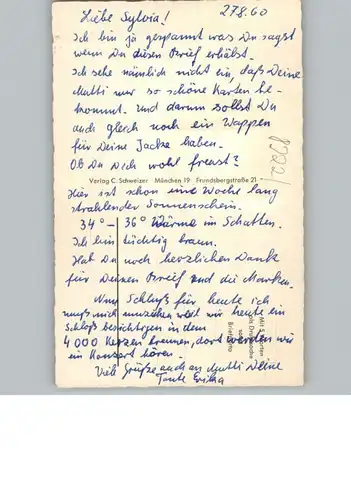 Liebe Sylvia! 27.8.60
Ich bin ja gespannt was Du sagst
wenn Du diesen Brief erhälst.
Ich sehe nämlich nicht ein, daß Deine
Mutti nur so schöne Karten be-
kommt. Und darum sollst Du
auch gleich noch ein Wappen
für Deine Jacke haben.
Ob Du Dich wohl freust?
Verlag C. Schweizer München 19 Frundsbergstraße 21
Hier ist schon eine Woche lang
strahlender Sonnenschein.
34° – 36° Wärme im Schatten.
Ich bin tüchtig braun.
Hab Du noch herzlichen Dank
für Deinen Brief und die Marken.
Nun Schluß für heute ich
muß mich umziehen weil wir heute ein
Schloß besichtigen in dem
4000 Kerzen brennen, dort werden wir
ein Konzert hören.
Viele Grüße auch an Mutti Deine
Tante Erika
als Drucksache
Briefporto